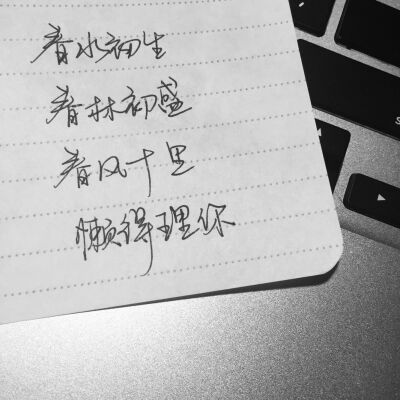 春水初生
春林初盛
春风十里
懒得理你